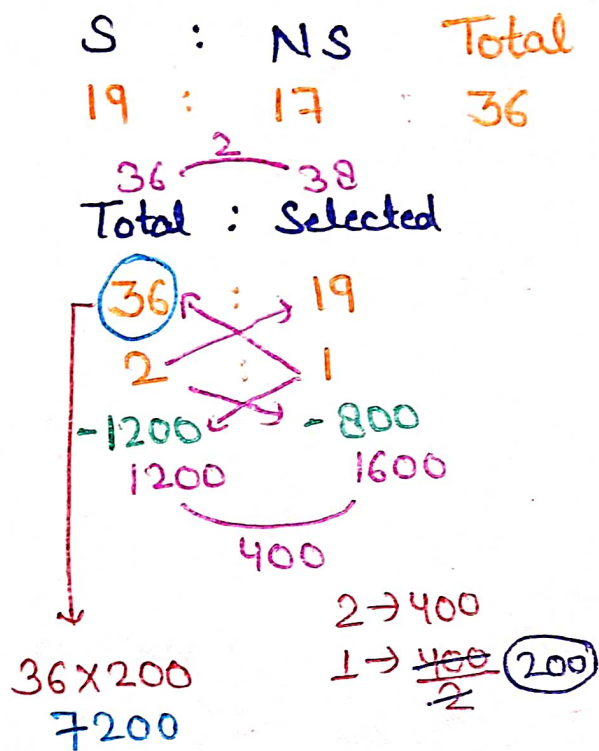 S : NS Total
19 : 17 : 36
2
36 38
Total : Selected
36 : 19
2 : 1
-1200 -800
1200 1600
400
2→400
1→ 400/2 200
36×200
7200